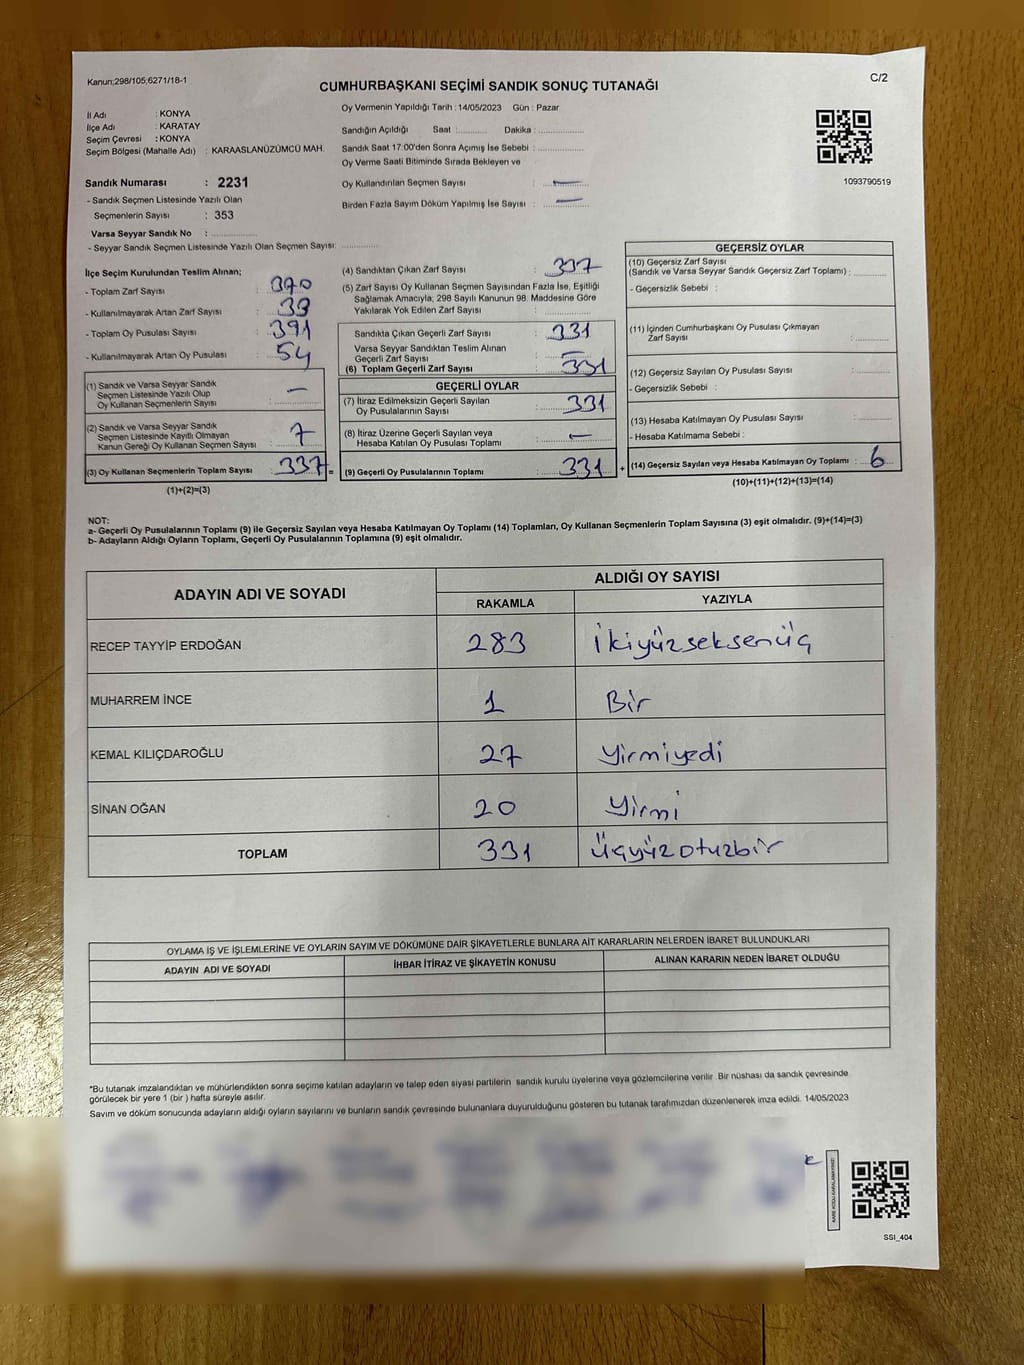 Kanun;298/105;6271/18-1
C/2
CUMHURBAŞKANI SEÇİMİ SANDIK SONUÇ TUTANAĞI
Oy Vermenin Yapıldığı Tarih : 14/05/2023 Gün : Pazar
İl Adı : KONYA
İlçe Adı : KARATAY
Seçim Çevresi : KONYA
Seçim Bölgesi (Mahalle Adı) : KARAASLANÜZÜMCÜ MAH.
Sandık Numarası : 2231
- Sandık Seçmen Listesinde Yazılı Olan
Seçmenlerin Sayısı : 353
Varsa Seyyar Sandık No :
- Seyyar Sandık Seçmen Listesinde Yazılı Olan Seçmen Sayısı:
Sandığın Açıldığı Saat : Dakika :
Sandık Saat 17:00'den Sonra Açımış İse Sebebi :
Oy Verme Saati Bitiminde Sırada Bekleyen ve
Oy Kullandırılan Seçmen Sayısı : —
Birden Fazla Sayım Döküm Yapılmış İse Sayısı : —
1093790519
İlçe Seçim Kurulundan Teslim Alınan;
- Toplam Zarf Sayısı : 370
- Kullanılmayarak Artan Zarf Sayısı : 33
- Toplam Oy Pusulası Sayısı : 391
- Kullanılmayarak Artan Oy Pusulası : 54
(1) Sandık ve Varsa Seyyar Sandık
Seçmen Listesinde Yazılı Olup
Oy Kullanan Seçmenlerin Sayısı : —
(2) Sandık ve Varsa Seyyar Sandık
Seçmen Listesinde Kayıtlı Olmayan
Kanun Gereği Oy Kullanan Seçmen Sayısı : 7
(3) Oy Kullanan Seçmenlerin Toplam Sayısı : 337 =
(1)+(2)=(3)
(4) Sandıktan Çıkan Zarf Sayısı : 337
(5) Zarf Sayısı Oy Kullanan Seçmen Sayısından Fazla İse, Eşitliği
Sağlamak Amacıyla; 298 Sayılı Kanunun 98. Maddesine Göre
Yakılarak Yok Edilen Zarf Sayısı :
Sandıkta Çıkan Geçerli Zarf Sayısı : 331
Varsa Seyyar Sandıktan Teslim Alınan
Geçerli Zarf Sayısı : —
(6) Toplam Geçerli Zarf Sayısı : 331
GEÇERLİ OYLAR
(7) İtiraz Edilmeksizin Geçerli Sayılan
Oy Pusulalarının Sayısı : 331
(8) İtiraz Üzerine Geçerli Sayılan veya
Hesaba Katılan Oy Pusulası Toplamı : —
(9) Geçerli Oy Pusulalarının Toplamı : 331 +
GEÇERSİZ OYLAR
(10) Geçersiz Zarf Sayısı
(Sandık ve Varsa Seyyar Sandık Geçersiz Zarf Toplamı) :
- Geçersizlik Sebebi :
(11) İçinden Cumhurbaşkanı Oy Pusulası Çıkmayan
Zarf Sayısı :
(12) Geçersiz Sayılan Oy Pusulası Sayısı :
- Geçersizlik Sebebi :
(13) Hesaba Katılmayan Oy Pusulası Sayısı :
- Hesaba Katılmama Sebebi :
(14) Geçersiz Sayılan veya Hesaba Katılmayan Oy Toplamı : 6
(10)+(11)+(12)+(13)=(14)
NOT:
a- Geçerli Oy Pusulalarının Toplamı (9) ile Geçersiz Sayılan veya Hesaba Katılmayan Oy Toplamı (14) Toplamları, Oy Kullanan Seçmenlerin Toplam Sayısına (3) eşit olmalıdır. (9)+(14)=(3)
b- Adayların Aldığı Oyların Toplamı, Geçerli Oy Pusulalarının Toplamına (9) eşit olmalıdır.
ADAYIN ADI VE SOYADI ALDIĞI OY SAYISI
RAKAMLA YAZIYLA
RECEP TAYYİP ERDOĞAN 283 İkiyüzseksenüç
MUHARREM İNCE 1 Bir
KEMAL KILIÇDAROĞLU 27 Yirmiyedi
SİNAN OĞAN 20 Yirmi
TOPLAM 331 Üçyüzotuzbir
OYLAMA İŞ VE İŞLEMLERİNE VE OYLARIN SAYIM VE DÖKÜMÜNE DAİR ŞİKAYETLERLE BUNLARA AİT KARARLARIN NELERDEN İBARET BULUNDUKLARI
ADAYIN ADI VE SOYADI İHBAR İTİRAZ VE ŞİKAYETİN KONUSU ALINAN KARARIN NEDEN İBARET OLDUĞU
*Bu tutanak imzalandıktan ve mühürlendikten sonra seçime katılan adayların ve talep eden siyasi partilerin sandık kurulu üyelerine veya gözlemcilerine verilir. Bir nüshası da sandık çevresinde
görülecek bir yere 1 (bir ) hafta süreyle asılır.
Sayım ve döküm sonucunda adayların aldığı oyların sayılarını ve bunların sandık çevresinde bulunanlara duyurulduğunu gösteren bu tutanak tarafımızdan düzenlenerek imza edildi. 14/05/2023
SSI_404